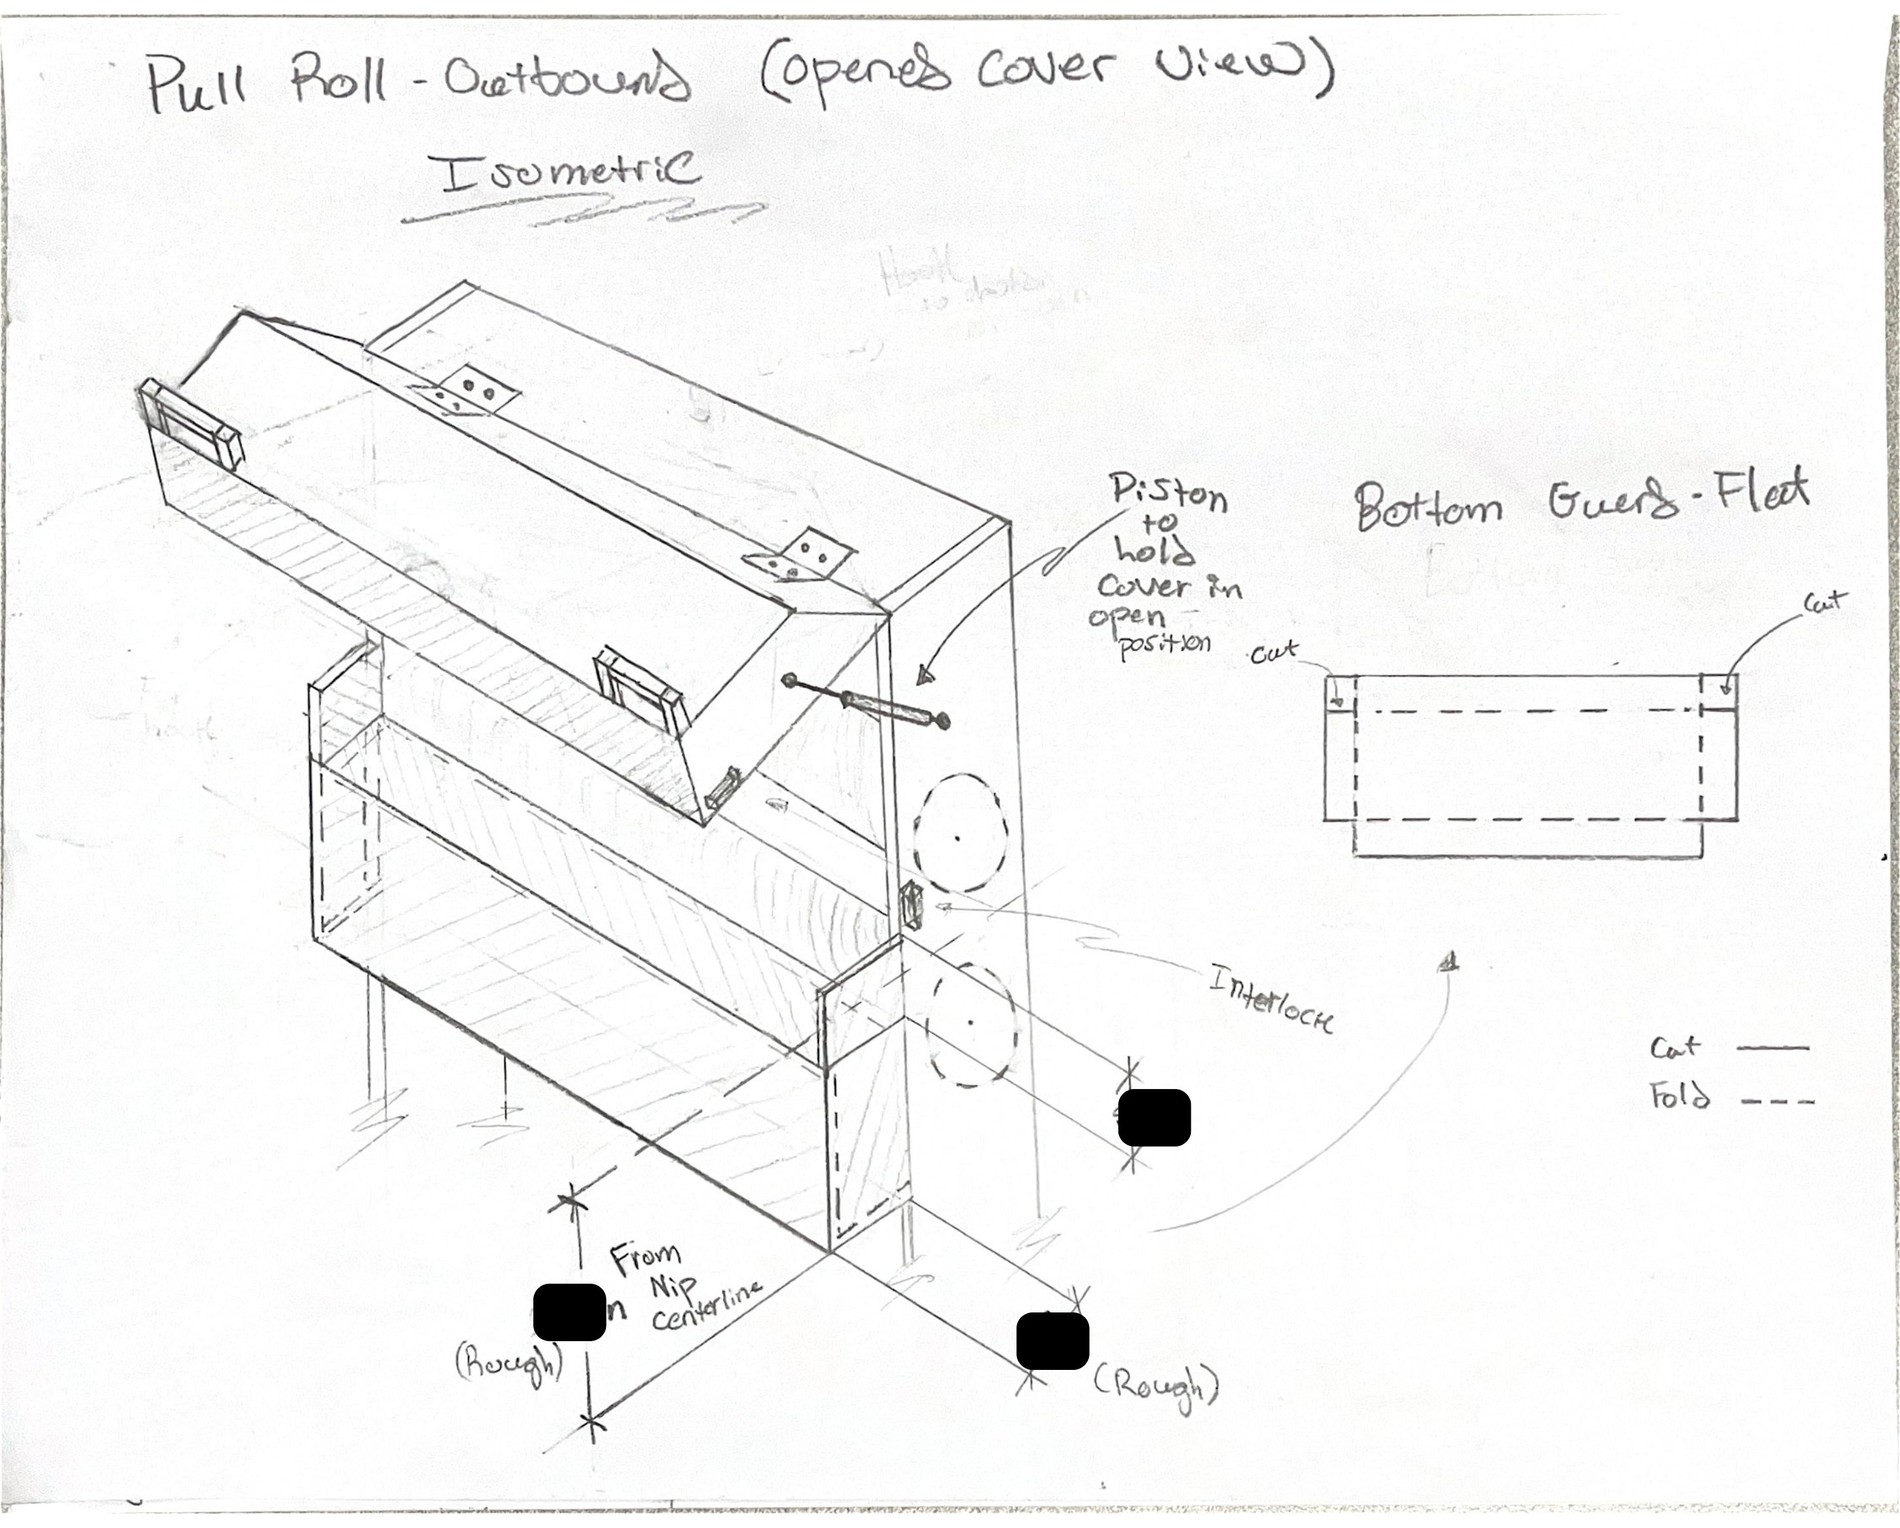 Pull Roll - Outbound (opened cover view)
Isometric
Piston
to
hold
cover in
open
position
Bottom Guard - Flat
cut
cut
Interlock
Cut
Fold
From
Nip
centerline
(Rough)
(Rough)